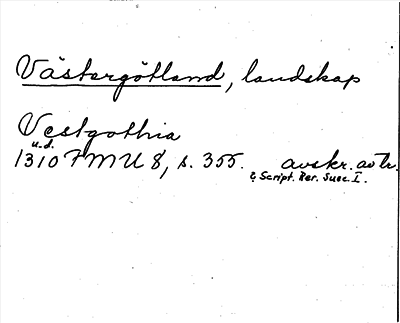 Västergötland, landskap
Vestgothia
u.d.
1310 FMU 8, s. 355. avskr. av tr.
Script. Rer. Suec. I.